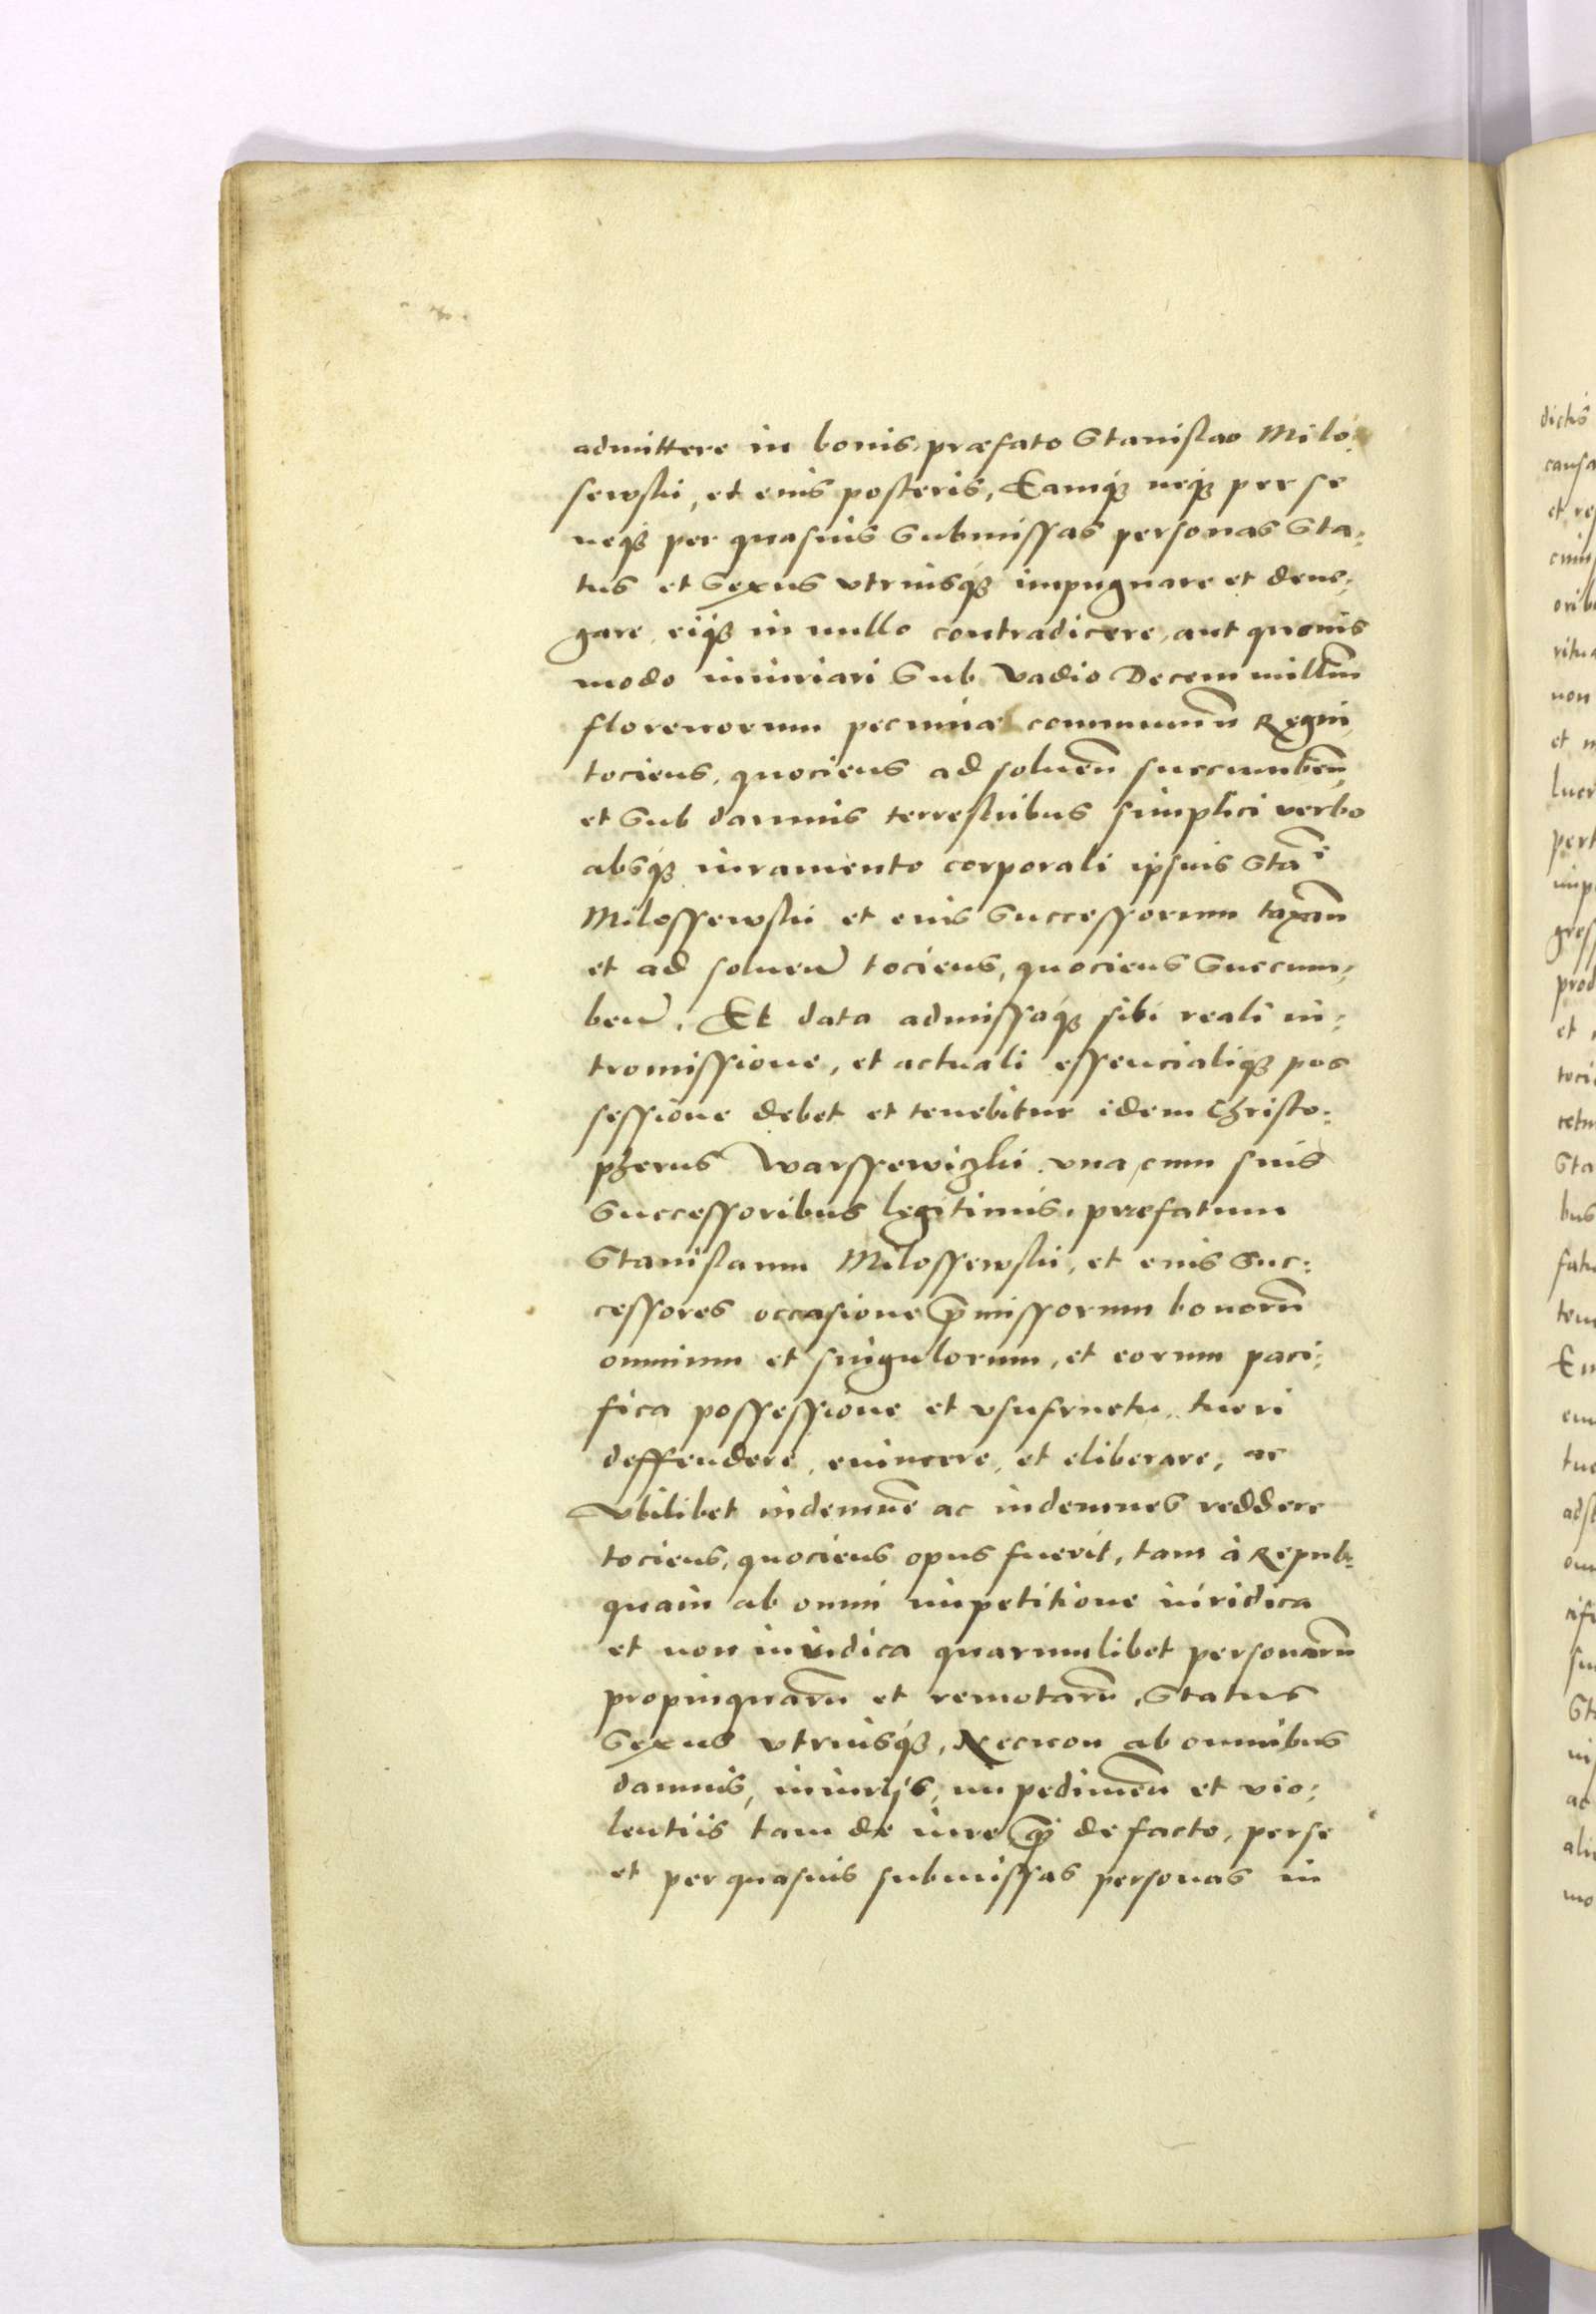 admittere in bonis, præfato Stanislao Milo:
sewskii, et eius posteris, Eamq3 neq3 per se
neq3 per quasuis submissas personas Sta:
tus et sexus vtriusq3 impugnare et dene:
gare, eiq3 in nullo contradicere, aut quouis
modo iniuriari Sub vadio Decem milliū
florenorum pecuniæ communiū Regni
tociens, quociens ad soluen̄ succumben̄,
et Sub damnis terrestribus simplici verbo
absq3 iuramento corporali ipsius Stāi
Milossewskii et eius Successorum taxan̄
et ad soluen̄ tociens, quociens Succum:
ben̄. Et data admissaq3 sibi reali in:
tromissione, et actuali essencialiq3 pos
sessione debet et tenebitur idem Christo:
pherus Warssewiczkii vna cum suis
Successoribus legitimis, præfatum
Stanislaum Milossewskii, et eius Suc:
cessores occasione p̄missorum bonorū
omnium et singulorum, et eorum paci:
fica possessione et vsufructu, tueri
deffendere, euincere, et eliberare, ac
vbilibet indemnē ac indemnes reddere
tociens, quociens opus fuerit, tam à Repub:
quam ab omni impetitione iuridica
et non iuridica quarumlibet personarū
propinquarū et remotarū, Status
Sexus vtriusq3, Necnon ab omnibus
damnis, iniurijs, impedimen̄ et vio:
lentiis tam de iure q̄ de facto, per se
et per quasuis submissas personas in